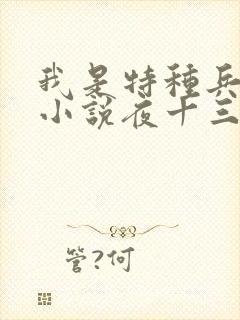 我是特種兵
小說夜十三
管?何